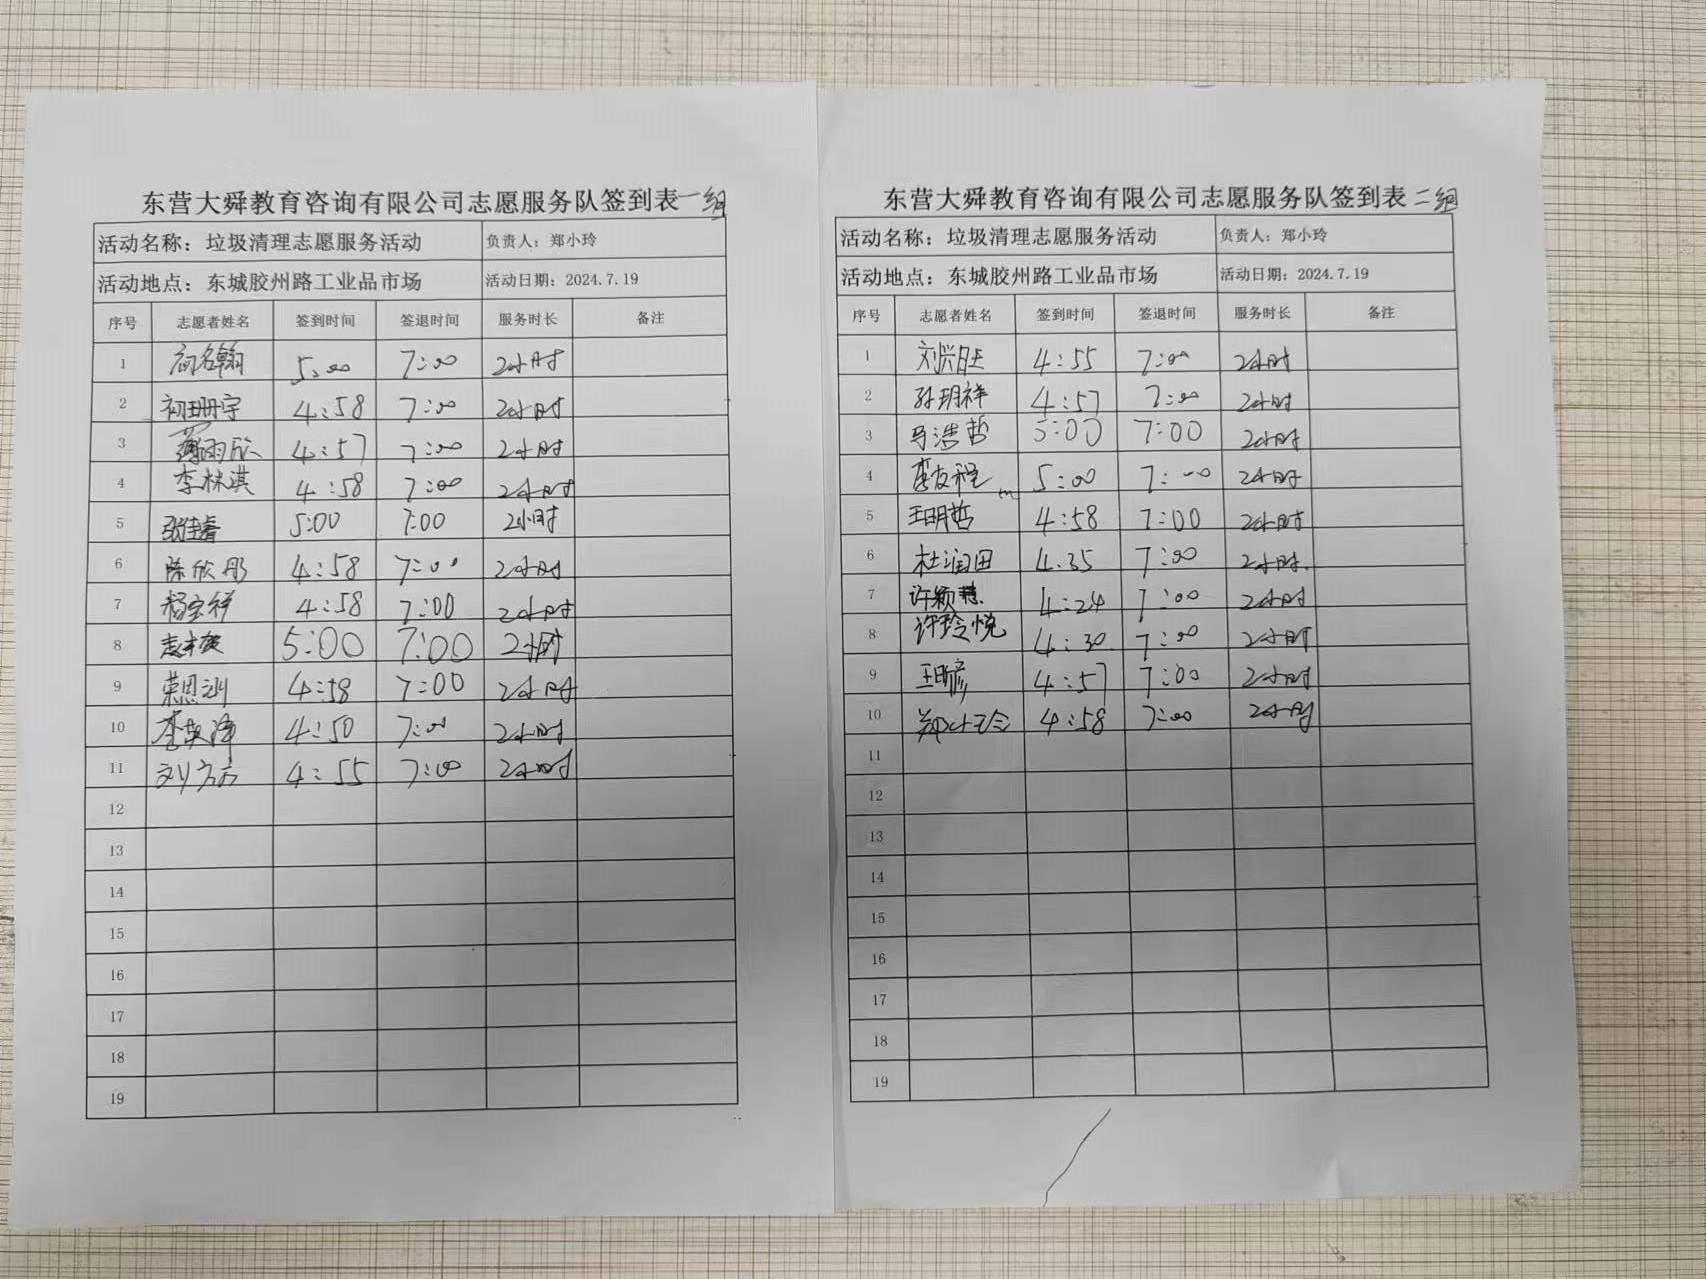 东营大舜教育咨询有限公司志愿服务队签到表一组
活动名称：垃圾清理志愿服务活动 负责人：郑小玲
活动地点：东城胶州路工业品市场 活动日期：2024.7.19
序号 志愿者姓名 签到时间 签退时间 服务时长 备注
1 5:00 7:00 2小时
2 初珊宇 4:58 7:00 2小时
3 4:57 7:00 2小时
4 李林淇 4:58 7:00 2小时
5 张佳睿 5:00 7:00 2小时
6 陈欣彤 4:58 7:00 2小时
7 杨宝祥 4:58 7:00 2小时
8 5:00 7:00 2小时
9 荣恩训 4:58 7:00 2小时
10 李英泽 4:50 7:00 2小时
11 刘方方 4:55 7:00 2小时
12
13
14
15
16
17
18
19
东营大舜教育咨询有限公司志愿服务队签到表二组
活动名称：垃圾清理志愿服务活动 负责人：郑小玲
活动地点：东城胶州路工业品市场 活动日期：2024.7.19
序号 志愿者姓名 签到时间 签退时间 服务时长 备注
1 刘兴旺 4:55 7:00 2小时
2 孙玥祥 4:57 7:00 2小时
3 马浩哲 5:00 7:00 2小时
4 5:00 7:00 2小时
5 王明哲 4:58 7:00 2小时
6 杜润田 4.35 7:00 2小时.
7 许颖慧 4:24 7:00 2小时
8 许玲悦 4:30. 7:00 2小时
9 4:57 7:00 2小时
10 郑小玲 4:58 7:00 2小时
11
12
13
14
15
16
17
18
19